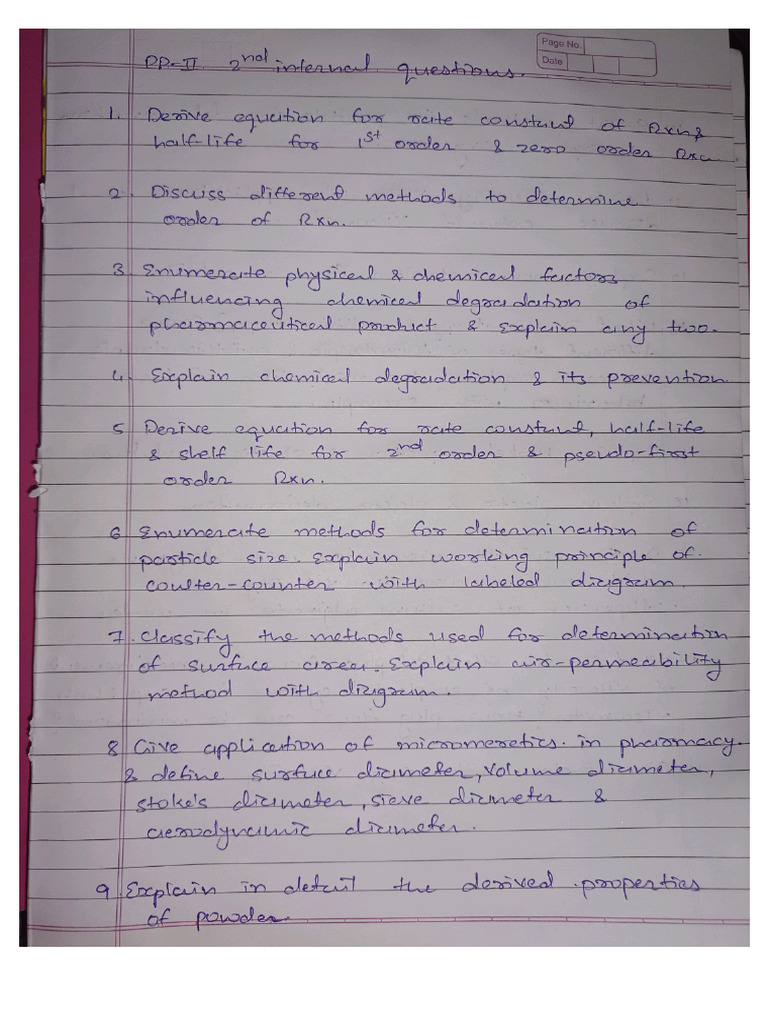 Page No.
Date
PP-II 2nd internal questions.
1. Derive equation for rate constant of Rxn &
half-life for 1st order & zero order Rxn
2. Discuss different methods to determine
order of Rxn.
3. Enumerate physical & chemical factors
influencing chemical degradation of
pharmaceutical product & explain any two.
4. Explain chemical degradation & its prevention.
5 Derive equation for rate constant, half-life
& shelf life for 2nd order & pseudo-first
order Rxn.
6 Enumerate methods for determination of
particle size. Explain working principle of.
coulter-counter with labeled diagram.
7. Classify the methods used for determination
of surface area. Explain air-permeability
method with diagram.
8 Give application of micromeretics. in pharmacy.
& define surface diameter, volume diameter,
stoke's diameter, sieve diameter &
aerodynamic diameter.
9. Explain in detail the derived properties
of powder.